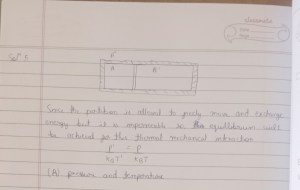 classmate
Date
Page
A
Since the partition is allowed to freely move and exchange
energy but it is impermeable so, the equilibrium will
be achieved for the thermal mechanical interaction
(A) pressure and temperature